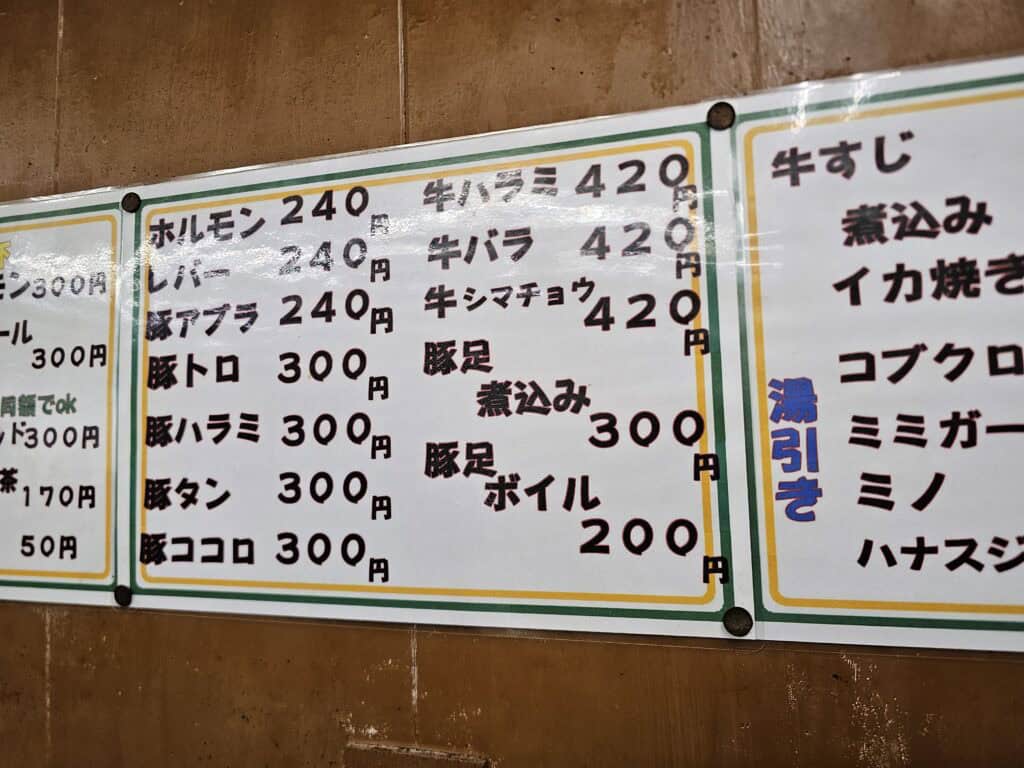 300円
ール
300円
同額でok
ッド300円
茶
170円
50円
ホルモン 240円
レバー 240円
豚アブラ 240円
豚トロ 300円
豚ハラミ 300円
豚タン 300円
豚ココロ 300円
牛ハラミ 420円
牛バラ 420円
牛シマチョウ 420円
豚足
煮込み 300円
豚足
ボイル 200円
牛すじ
煮込み
イカ焼き
湯引き
コブクロ
ミミガー
ミノ
ハナスジ